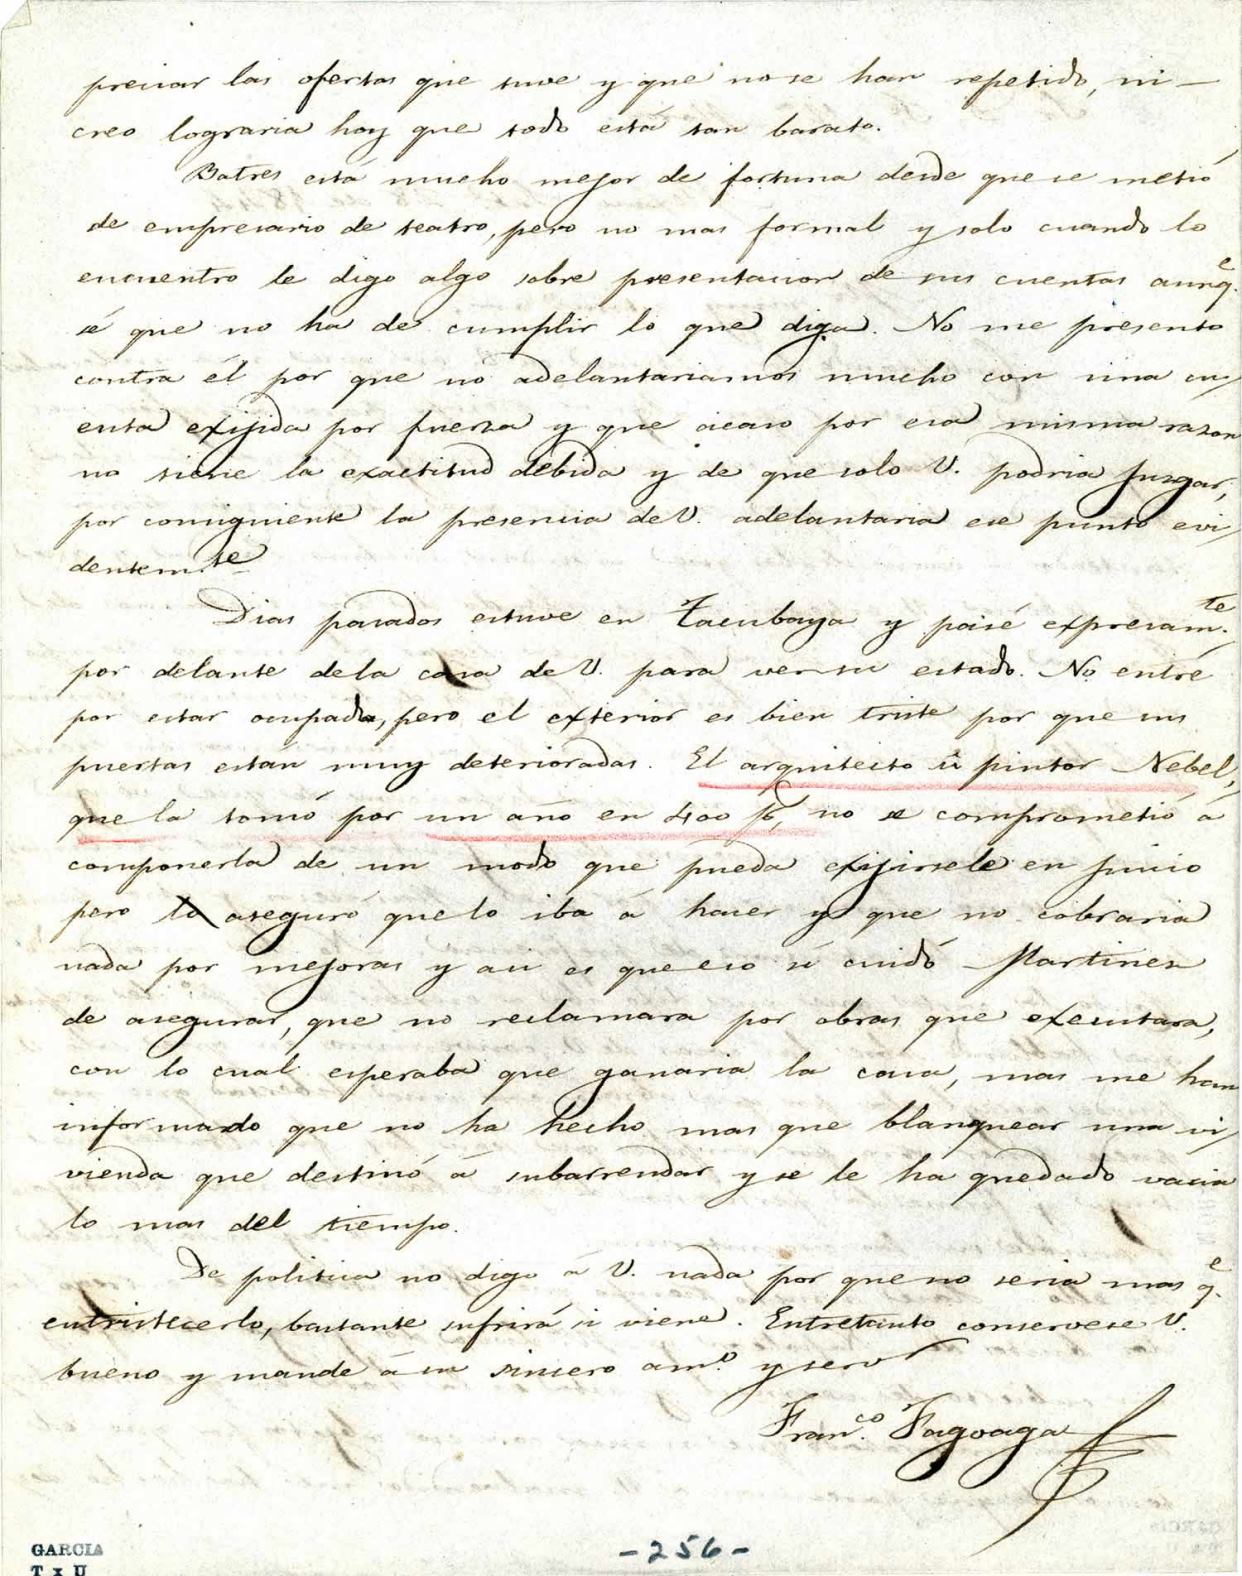 preciar las ofertas que tuve y que no se han repetido, ni
creo lograria hoy que todo está tan barato.
Batres está mucho mejor de fortuna desde que se metió
de empresario de teatro, pero no mas formal y solo cuando lo
encuentro le digo algo sobre presentacion de sus cuentas aunq.e
sé que no ha de cumplir lo que diga. No me presento
contra él por que no adelantariamos mucho con una cu/
enta exijida por fuerza y que acaso por esa misma razon
no tiene la exactitud debida y de que solo V. podria juzgar,
por consiguiente la presencia de V. adelantaria ese punto evi/
dentem.te
Dias pasados estuve en Tacubaya y pasé expresam.te
por delante de la casa de V. para ver su estado. No entré
por estar ocupada, pero el exterior es bien triste por que sus
puertas están muy deterioradas. El arquitecto ú pintor Nebel,
que la tomó por un año en 400 p., no se comprometió á
componerla de un modo que pueda exijirsele en juicio
pero lo aseguró que lo iba á hacer y que no cobraria
nada por mejoras y asi es que eso si cuidó Martinez
de asegurar, que no reclamara por obras que executara,
con lo cual esperaba que ganaria la casa, mas me han
informado que no ha hecho mas que blanquear una vi/
vienda que destinó á subarrendar y se le ha quedado vacia
lo mas del tiempo.
De politica no digo á V. nada por que no seria mas q.e
entristecerlo, bastante sufrirá si viene. Entretanto conservese V.
bueno y mande á su sincero am.o y serv.r
Fran.co Fagoaga
-256-
GARCIA